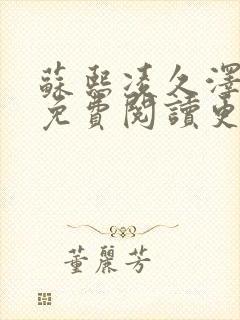 蘇熙凌久澤
免費閱讀更
董麗芳